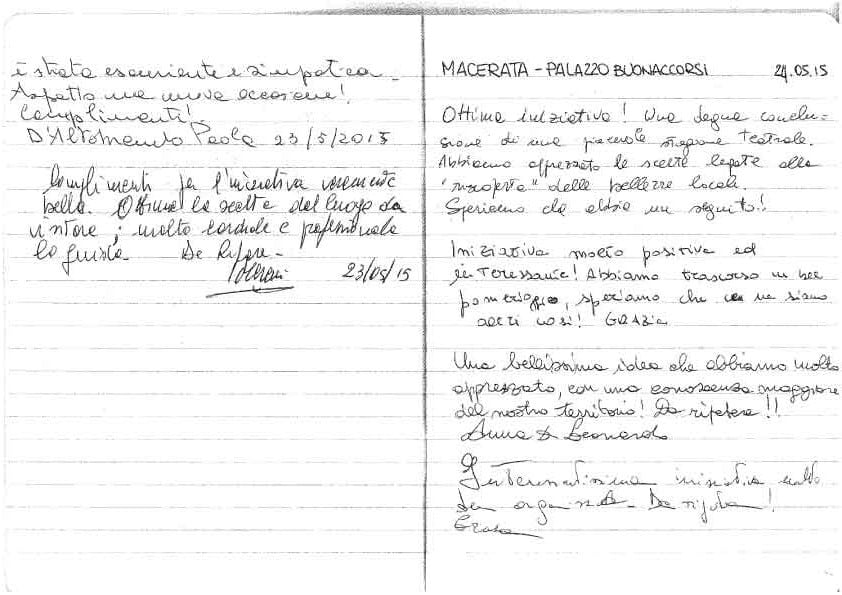 è stata esauriente e simpatica.
Aspetto una nuova occasione!
Complimenti!
D'Altomando Paola 23/5/2015
Complimenti per l'iniziativa veramente
bella. Ottima la scelta del luogo da
visitare; molto cordiale e professionale
la guida. Da Rifare -
23/05/15
MACERATA - PALAZZO BUONACCORSI 24.05.15
Ottima iniziativa! Una degna conclu=
sione di una piacevole stagione teatrale.
Abbiamo apprezzato le scelte legate alla
"riscoperta" delle bellezze locali.
Speriamo che abbia un seguito!!
Iniziativa molto positiva ed
interessante! Abbiamo trascorso un bel
pomeriggio, speriamo che ce ne siano
altri così! GRAZIE
Una bellissima idea che abbiamo molto
apprezzato, con una conoscenza maggiore
del nostro territorio! Da ripetere!!
Anna D Leonardo
Interessantissima iniziativa molto
ben organizzata - Da ripetere!
Grazie